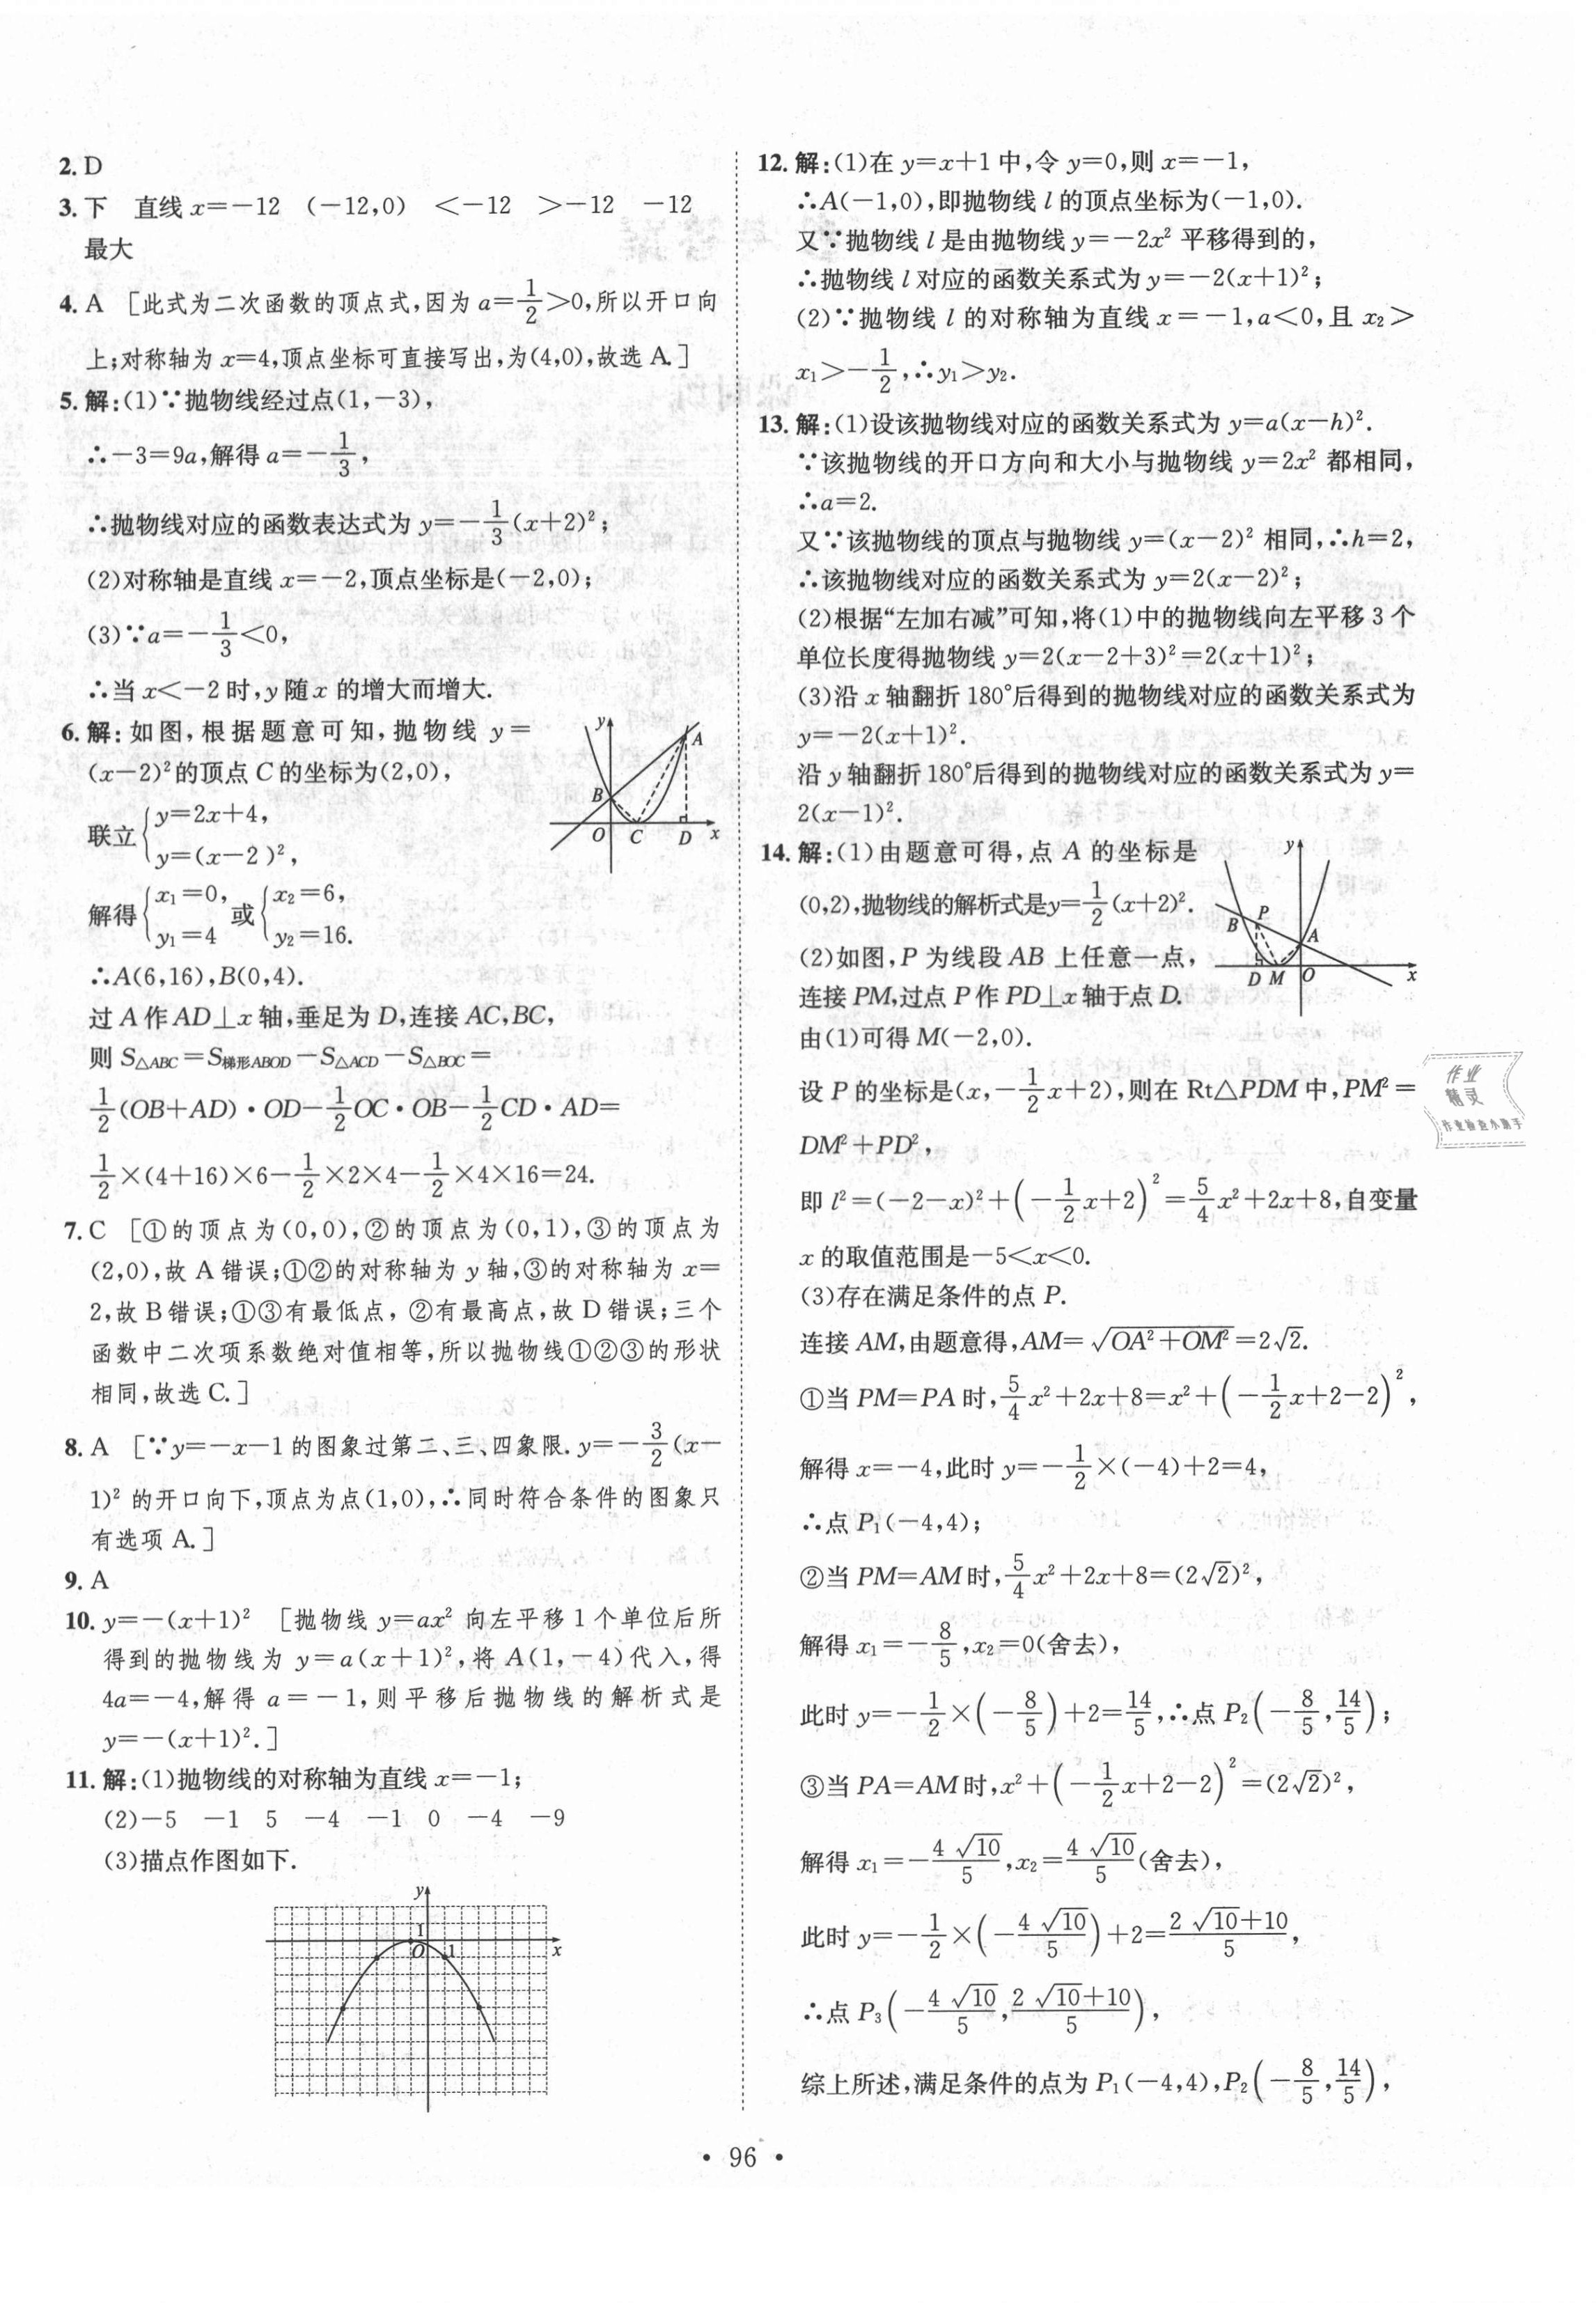 2. D
3. 下 直线 x=-12 (-12,0) <-12 >-12 -12
最大
4. A [此式为二次函数的顶点式,因为 a=1/2>0,所以开口向
上;对称轴为 x=4,顶点坐标可直接写出,为(4,0),故选 A.]
5. 解:(1)∵抛物线经过点(1,-3),
∴-3=9a,解得 a=-1/3,
∴抛物线对应的函数表达式为 y=-1/3(x+2)²;
(2)对称轴是直线 x=-2,顶点坐标是(-2,0);
(3)∵a=-1/3<0,
∴当 x<-2 时,y 随 x 的增大而增大.
6. 解:如图,根据题意可知,抛物线 y=
(x-2)²的顶点 C 的坐标为(2,0),
联立{y=2x+4, y=(x-2)²,
解得{x₁=0, y₁=4 或{x₂=6, y₂=16.
∴A(6,16),B(0,4).
过 A 作 AD⊥x 轴,垂足为 D,连接 AC,BC,
则 S△ABC=S梯形ABOD-S△ACD-S△BOC=
1/2(OB+AD)·OD-1/2OC·OB-1/2CD·AD=
1/2×(4+16)×6-1/2×2×4-1/2×4×16=24.
y
A
B
O C D x
7. C [①的顶点为(0,0),②的顶点为(0,1),③的顶点为
(2,0),故 A 错误;①②的对称轴为 y 轴,③的对称轴为 x=
2,故 B 错误;①③有最低点,②有最高点,故 D 错误;三个
函数中二次项系数绝对值相等,所以抛物线①②③的形状
相同,故选 C.]
8. A [∵y=-x-1 的图象过第二、三、四象限.y=-3/2(x-
1)² 的开口向下,顶点为点(1,0),∴同时符合条件的图象只
有选项 A.]
9. A
10. y=-(x+1)² [抛物线 y=ax² 向左平移 1 个单位后所
得到的抛物线为 y=a(x+1)²,将 A(1,-4)代入,得
4a=-4,解得 a=-1,则平移后抛物线的解析式是
y=-(x+1)².]
11. 解:(1)抛物线的对称轴为直线 x=-1;
(2)-5 -1 5 -4 -1 0 -4 -9
(3)描点作图如下.
y
1
O 1 x
12. 解:(1)在 y=x+1 中,令 y=0,则 x=-1,
∴A(-1,0),即抛物线 l 的顶点坐标为(-1,0).
又∵抛物线 l 是由抛物线 y=-2x² 平移得到的,
∴抛物线 l 对应的函数关系式为 y=-2(x+1)²;
(2)∵抛物线 l 的对称轴为直线 x=-1,a<0,且 x₂>
x₁>-1/2,∴y₁>y₂.
13. 解:(1)设该抛物线对应的函数关系式为 y=a(x-h)².
∵该抛物线的开口方向和大小与抛物线 y=2x² 都相同,
∴a=2.
又∵该抛物线的顶点与抛物线 y=(x-2)² 相同,∴h=2,
∴该抛物线对应的函数关系式为 y=2(x-2)²;
(2)根据“左加右减”可知,将(1)中的抛物线向左平移 3 个
单位长度得抛物线 y=2(x-2+3)²=2(x+1)²;
(3)沿 x 轴翻折 180°后得到的抛物线对应的函数关系式为
y=-2(x+1)².
沿 y 轴翻折 180°后得到的抛物线对应的函数关系式为 y=
2(x-1)².
14. 解:(1)由题意可得,点 A 的坐标是
(0,2),抛物线的解析式是y=1/2(x+2)².
(2)如图,P 为线段 AB 上任意一点,
连接 PM,过点 P 作 PD⊥x 轴于点 D.
由(1)可得 M(-2,0).
y
B P
A
D M O x
设 P 的坐标是(x,-1/2x+2),则在 Rt△PDM 中,PM²=
DM²+PD²,
即 l²=(-2-x)²+(-1/2x+2)²=5/4x²+2x+8,自变量
x 的取值范围是-5<x<0.
(3)存在满足条件的点 P.
连接 AM,由题意得,AM=√(OA²+OM²)=2√2.
①当 PM=PA 时,5/4x²+2x+8=x²+(-1/2x+2-2)²,
解得 x=-4,此时 y=-1/2×(-4)+2=4,
∴点 P₁(-4,4);
②当 PM=AM时,5/4x²+2x+8=(2√2)²,
解得 x₁=-8/5,x₂=0(舍去),
此时 y=-1/2×(-8/5)+2=14/5,∴点 P₂(-8/5,14/5);
③当 PA=AM时,x²+(-1/2x+2-2)²=(2√2)²,
解得 x₁=-4√10/5,x₂=4√10/5(舍去),
此时 y=-1/2×(-4√10/5)+2=(2√10+10)/5,
∴点 P₃(-4√10/5,(2√10+10)/5),
综上所述,满足条件的点为 P₁(-4,4),P₂(-8/5,14/5),
作业
精灵
作业检查小助手
· 96 ·